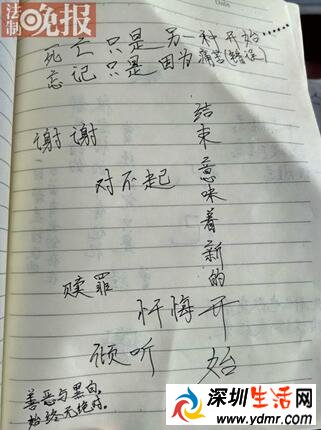 法制晚报
Date
死亡只是另一种开始
忘记只是因为痛苦(错误)
谢谢
对不起
结束意味着新的开始
赎罪
忏悔
倾听
善恶与黑白,
始终无绝对。
深圳生活网
www.ydmr.com